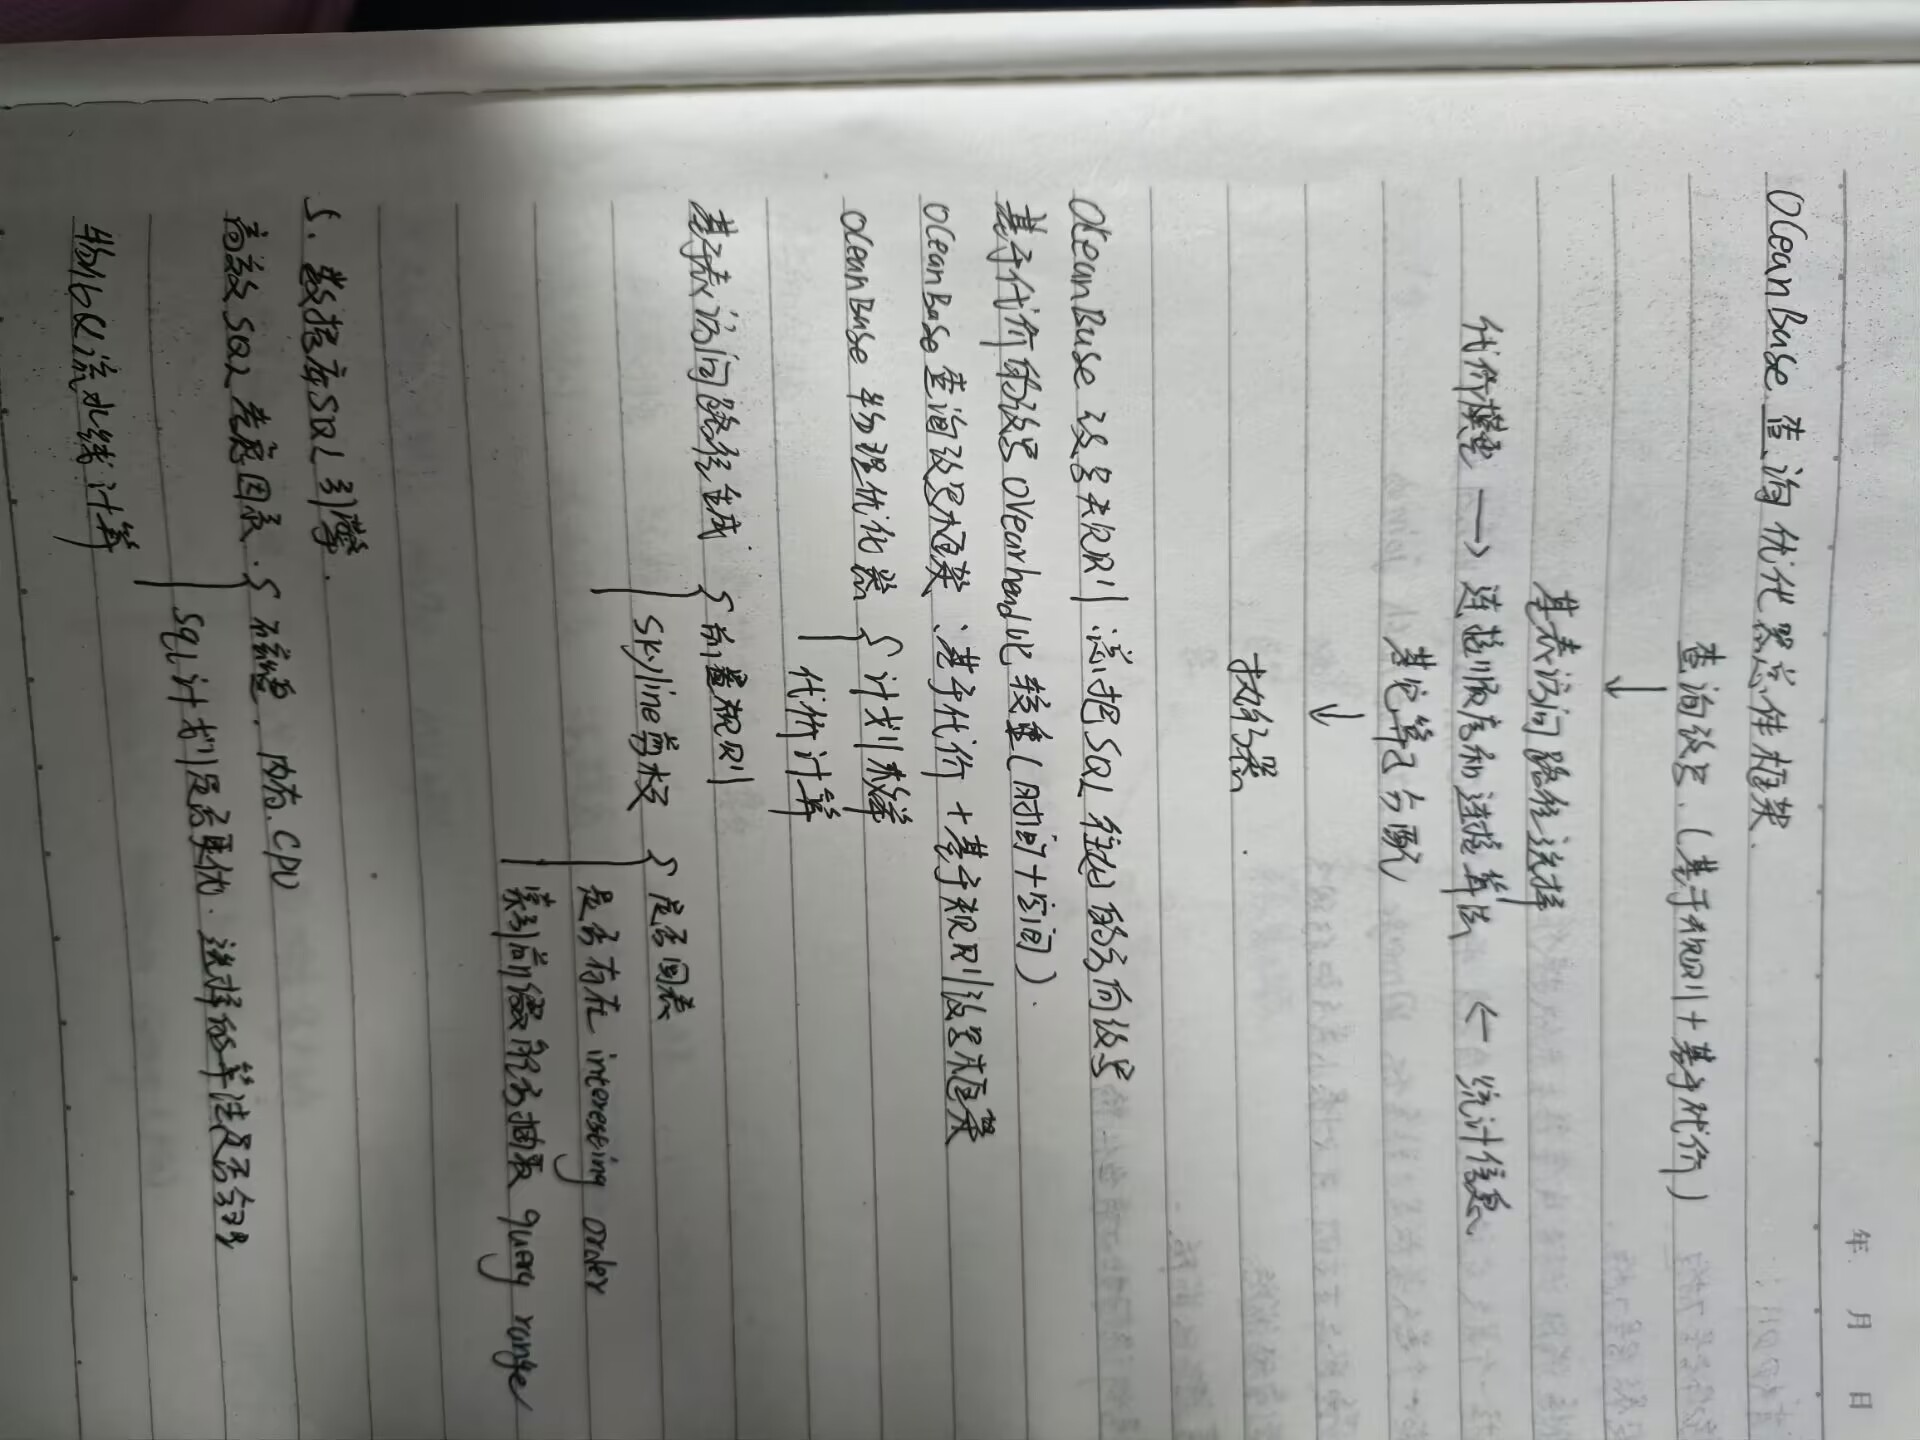 年 月 日
OceanBase 查询优化器总件框架.
查询改写.(基于规则+基于代价)
↓
基表访问路径选择
代价模型 → 连接顺序和连接算法 ← 统计信息
其它算子分配
↓
执行器.
OceanBase 改写规则.总把SQL往好的方向改写
基于代价的改写Overhead比较重(时间+空间).
OceanBase 查询改写框架、基于代价+基于规则改写框架
OceanBase 物理优化器 计划枚举
代价计算
基于表访问路径生成 前置规则
skyline剪枝 是否回表
是否存在 interesting order
索引前缀能否抽取 query range
5. 数据库SQL引擎.
高效SQL考虑因素. 磁盘.内存.CPU
SQL计划是否更优.选择的算法是否合理
流水线计算